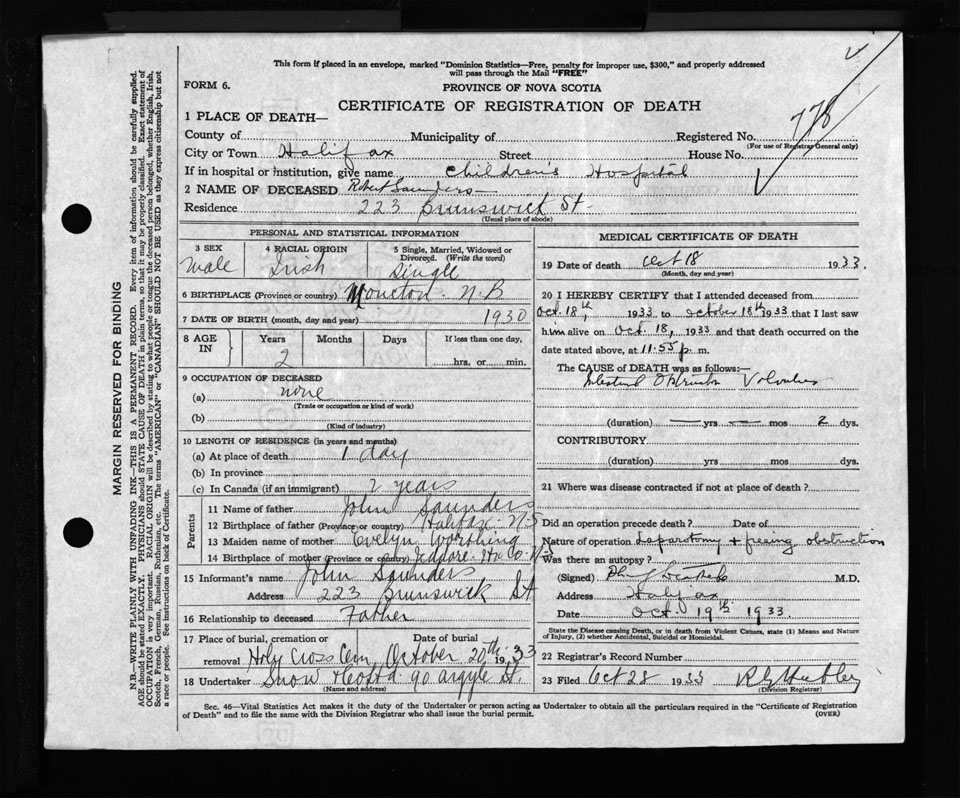 This form if placed in an envelope, marked "Dominion Statistics—Free, penalty for improper use, $300," and properly addressed
will pass through the Mail "FREE"
FORM 6.
PROVINCE OF NOVA SCOTIA
CERTIFICATE OF REGISTRATION OF DEATH
1 PLACE OF DEATH—
County of Municipality of Registered No. 778
(For use of Registrar General only)
City or Town Halifax Street House No.
If in hospital or institution, give name Children's Hospital
2 NAME OF DECEASED Robert Saunders
Residence 223 Brunswick St.
(Usual place of abode)
PERSONAL AND STATISTICAL INFORMATION
3 SEX Male
4 RACIAL ORIGIN Irish
5 Single, Married, Widowed or Divorced. (Write the word) Single
6 BIRTHPLACE (Province or country) Moncton. N.B
7 DATE OF BIRTH (month, day and year) 1930
8 AGE IN Years 2 Months Days If less than one day, hrs. or min.
9 OCCUPATION OF DECEASED
(a) none
(Trade or occupation or kind of work)
(b)
(Kind of industry)
10 LENGTH OF RESIDENCE (in years and months)
(a) At place of death 1 day
(b) In province
(c) In Canada (if an immigrant) 2 years
Parents
11 Name of father John Saunders
12 Birthplace of father (Province or country) Halifax. N-S
13 Maiden name of mother Evelyn Worthing
14 Birthplace of mother (Province or country) Jeddore. Hx Co. N-S
15 Informant's name John Saunders
Address 223 Brunswick St
16 Relationship to deceased Father
17 Place of burial, cremation or removal Holy Cross Cem. Date of burial October 20th 1933
18 Undertaker Snow & Co Ltd. 90 Argyle St.
(Name and address)
MEDICAL CERTIFICATE OF DEATH
19 Date of death Oct 18 1933.
(Month, day and year)
20 I HEREBY CERTIFY that I attended deceased from
Oct. 18th, 1933 to October 18th 1933 that I last saw
him alive on Oct. 18, 1933 and that death occurred on
date stated above, at 11.55 p. m.
The CAUSE OF DEATH was as follows:—
Intestinal Obstruction Volvulus
(duration) — yrs — mos 2 dys.
CONTRIBUTORY
(duration) yrs mos dys.
21 Where was disease contracted if not at place of death?
Did an operation precede death? Date of
Nature of operation Laparotomy + freeing obstruction
Was there an autopsy?
(Signed) M.D.
Address Halifax
Date Oct. 19th 1933.
State the Disease causing Death, or in death from Violent Causes, state (1) Means and Nature
of Injury, (2) whether Accidental, Suicidal or Homicidal.
22 Registrar's Record Number
23 Filed Oct 28 1933
(Division Registrar)
Sec. 46—Vital Statistics Act makes it the duty of the Undertaker or person acting as Undertaker to obtain all the particulars required in the "Certificate of Registration
of Death" and to file the same with the Division Registrar who shall issue the burial permit.
(OVER)
MARGIN RESERVED FOR BINDING
N.B.—WRITE PLAINLY WITH UNFADING INK—THIS IS A PERMANENT RECORD. Every item of information should be carefully supplied.
AGE should be stated EXACTLY. PHYSICIANS should STATE CAUSE OF DEATH in plain terms, so that it may be properly classified. Exact statement of
OCCUPATION is very important. RACIAL ORIGIN will be described by stating to what people or tongue the deceased person belonged, whether English, Irish,
Scotch, French, German, Russian, Ruthenian, etc. The terms "AMERICAN" or "CANADIAN" SHOULD NOT BE USED as they express citizenship but not
a race or people. See instructions on back of Certificate.